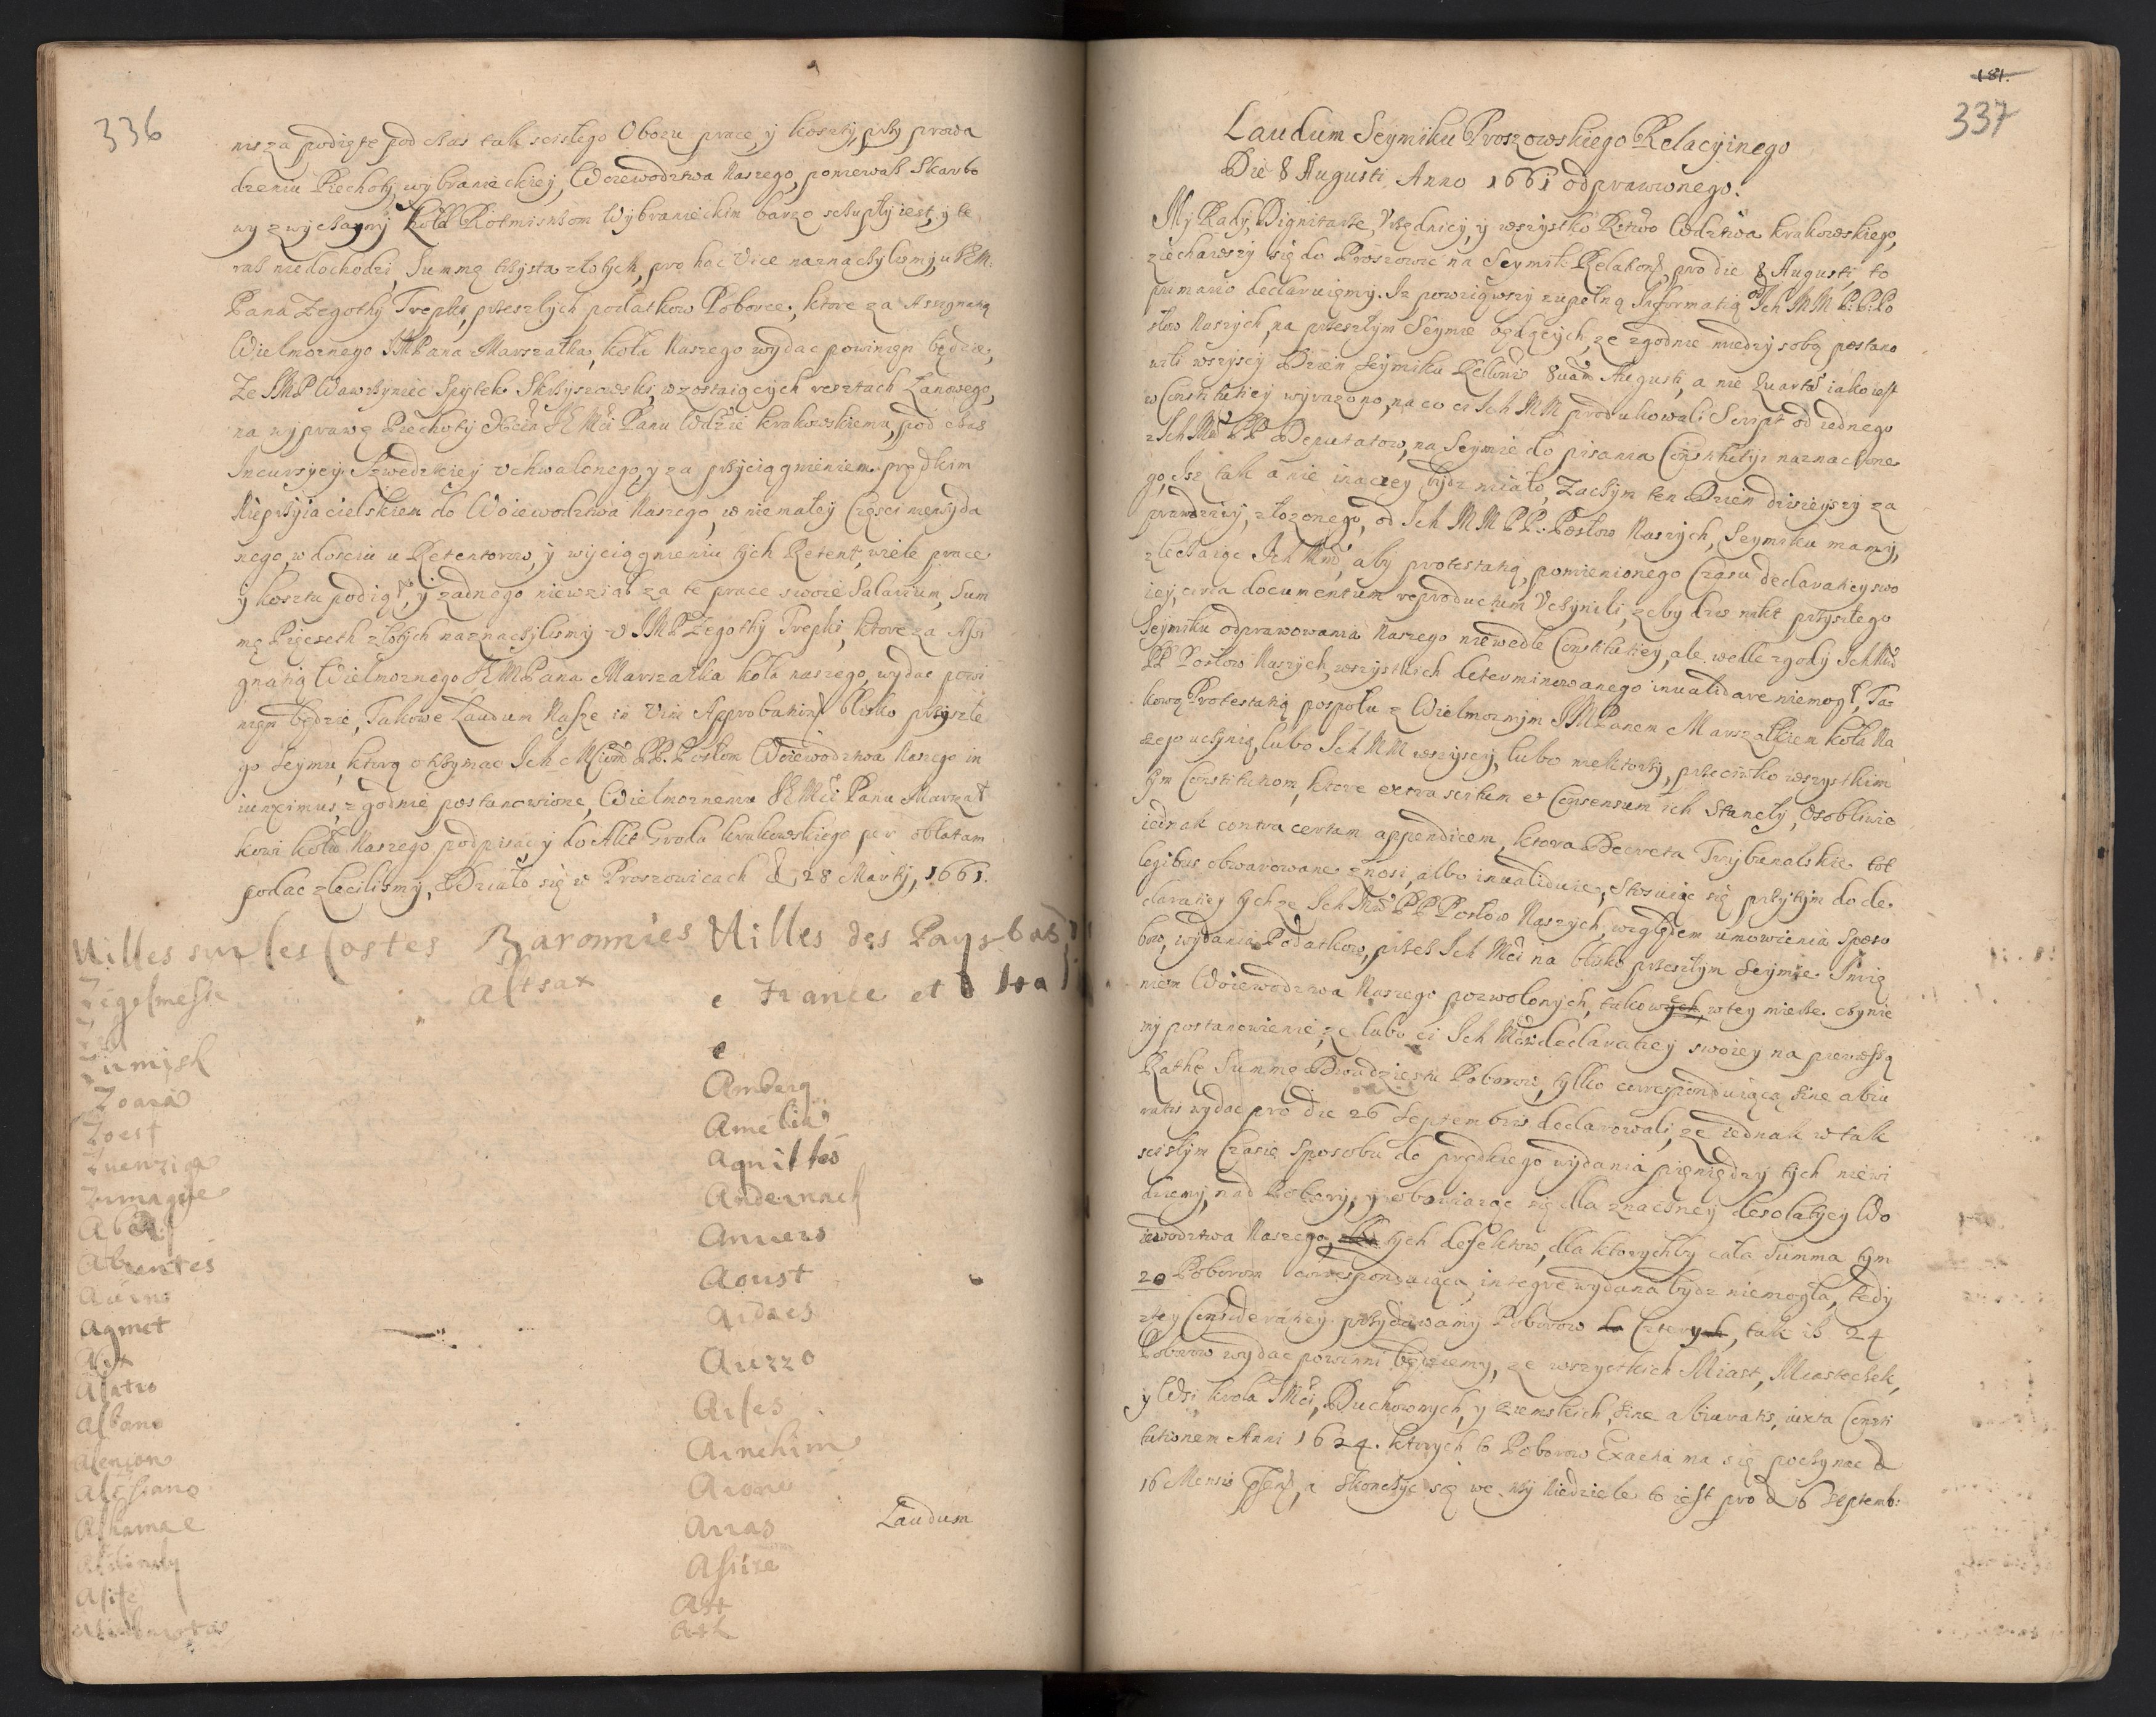 336
nisza podięte pod czas tak scisłego Obozu prace, y koszty, przy prowa
dzeniu Piechoty wybranieckiey, Woiewodztwa Naszego, poniewasz Skarbo
wy zwyczayny Żołd Rotmistrzom Wybranieckim barzo szczupły iest, y te
raz niedochodzi, Summę trzysta złotych, pro hac Vice naznaczylismy u JEM.
Pana Zegothy Trepki, przeszłych podatkow Poborce, ktore za Assignatią
Wielmoznego JMPana Marszałka, koła Naszego wydac powinien będzie,
Ze JMP Wawrzyniec Spytek Skrzyszowski, w zostaiących resztach Łanowego,
na wyprawę Piechoty JEMci Panu Wdzie krakowskiemu, pod czas
Incursyey Szwedzkiey uchwalonego, y za przyciągnieniem prędkim
Nieprzyiacielskiem do Woiewodztwa Naszego, w niemałey Częsci niewyda
nego, w dosciu u Retentorow, y wyciągnieniu tych Retent, wiele prace
y kosztu podiął, y zadnego niewziąl za te prace swoie Salarium, Sum
mę Pięcseth złotych naznaczylismy u JMP Zegothy Trepki, ktore za Assi
gnatią Wielmoznego JEMPana Marszałka koła naszego, wydac powi
nien będzie, Takowe Laudum Nasze in Vim Approbationis blisko przyszłe
go Seymu, ktorą otrzymac Ich Mciom PP. Posłom Woiewodztwa Naszego in
iunximus, zgodnie postanowione, Wielmoznemu JEMci Panu Marszał
kowi koła Naszego podpisac y do Akt Grodu krakowskiego per oblatam
podac zlecilismy, Działo się w Proszowicach d 28 Martij, 1661.
Uilles sur les Costes Baronnies Uilles des Pays bas
Zegelmesse altsax e France et
Zirmish
Zoara
Zoest
Zuenziga
Zumaque
Abrantes
Agmet
Alatro
Albano
Alencon
Alessano
Amberg
Amelia
Aquilles
Andernach
Anuers
Aoust
Ardres
Arezzo
Arles
Arnehim
Arone
Arras
Assise
Ast
Ath
Laudum
181.
337
Laudum Seymiku Proszowskiego Relacyinego
Die 8 Augusti Anno 1661 odprawionego.
My Rady, Dignitarze, Urzędnicy, y wszystko Rstwo Wdztwa krakowskiego,
ziechawszy się do Proszowic na Seymik Relationis, pro die 8 Augusti, to
primario declaruiemy. Iz powziąwszy zupełną Informatią od Ich MM P:P: Po
słow Naszych, na przeszłym Seymie będących, ze zgodnie miedzy sobą postano
wili wszyscy Dzien Seymiku Rellonis 8uam Augusti, a nie Quarta iako iest
w Constitutiey wyrazono, na co ci Ich MM produkowali Script od iednego
z Ich Mci PP Deputatow, na Seymie do pisania Constitutyi naznaczone
go, Isz tak a nie inaczey bydz miało, Zaczym ten Dzien dzisieyszy za
prawdziwy, złozonego, od Ich MM PP. Posłow Naszych, Seymiku mamy,
zlecaiąc Ich Mm, aby protestatią, pomienionego Czasu declaratiey swo
iey, circa documentum reproductum Uczynili, zeby drw nikt przyszłego
Seymiku odprawowania Naszego niewedle Constitutiey, ale wedle zgody Ich Mm
PP Posłow Naszych, wszystkich determinowanego inualidare niemogł, Ta-
kową Protestatią pospołu z Wielmoznym JMPanem Marszałkiem koła Na
szego uczynią, lubo Ich MM wszyscy, lubo niektorzy, przeciwko wszystkim
tym Constitutiom, ktore extra scitum et Consensum ich Stanęły, Osobliwie
iednak contra certam appendicem, ktora Decreta Trybunalskie tot
legibus obwarowane znosi, albo inualiduie, Stosuiąc się przytym do de
claratiey tychze Ich Mm PP Posłow Naszych, względem umowienia Sposo
bow, wydania Podatkow, przez Ich Mci na blisko przeszłym Seymie Imie
niem Woiewodztwa Naszego pozwolonych, takowych, w tey mierze czynie
my postanowienie, ze lubo ci Ich Mci z declaratiey swoiey na pierwszą
Rathę Summę Dwudziestu Poborow, tylko correspondiuiącą Sine abiu
ratis wydac pro die 26 Septembris declarowali, ze iednak w tak
scisłym Czasie Sposobu do prędkiego wydania pieniędzy tych niewi
dziemy, nad Pobory, y obawiaiąc się dla znaczney desolatyey Wo
iewodztwa Naszego, tych defektow, dla ktorychby cała Summa tym
20 Poborom correspondiuiąca, integre wydana bydz niemogła, tedy
z tey Consideratiey przydawamy Poborow do Czterych, tak isz 24
Poborow wydac powinni będziemy, ze wszystkich Miast, Miasteczek,
y Wsi krola JMci, Duchownych, y ziemskich, Sine abiuratis, iuxta Consti
tutionem Anni 1624. ktorych to Poborow Exactia ma się poczynac d
16 Mensis Psentis, a skonczyc się we trzy Niedziele to iest pro d 6 Septemb: